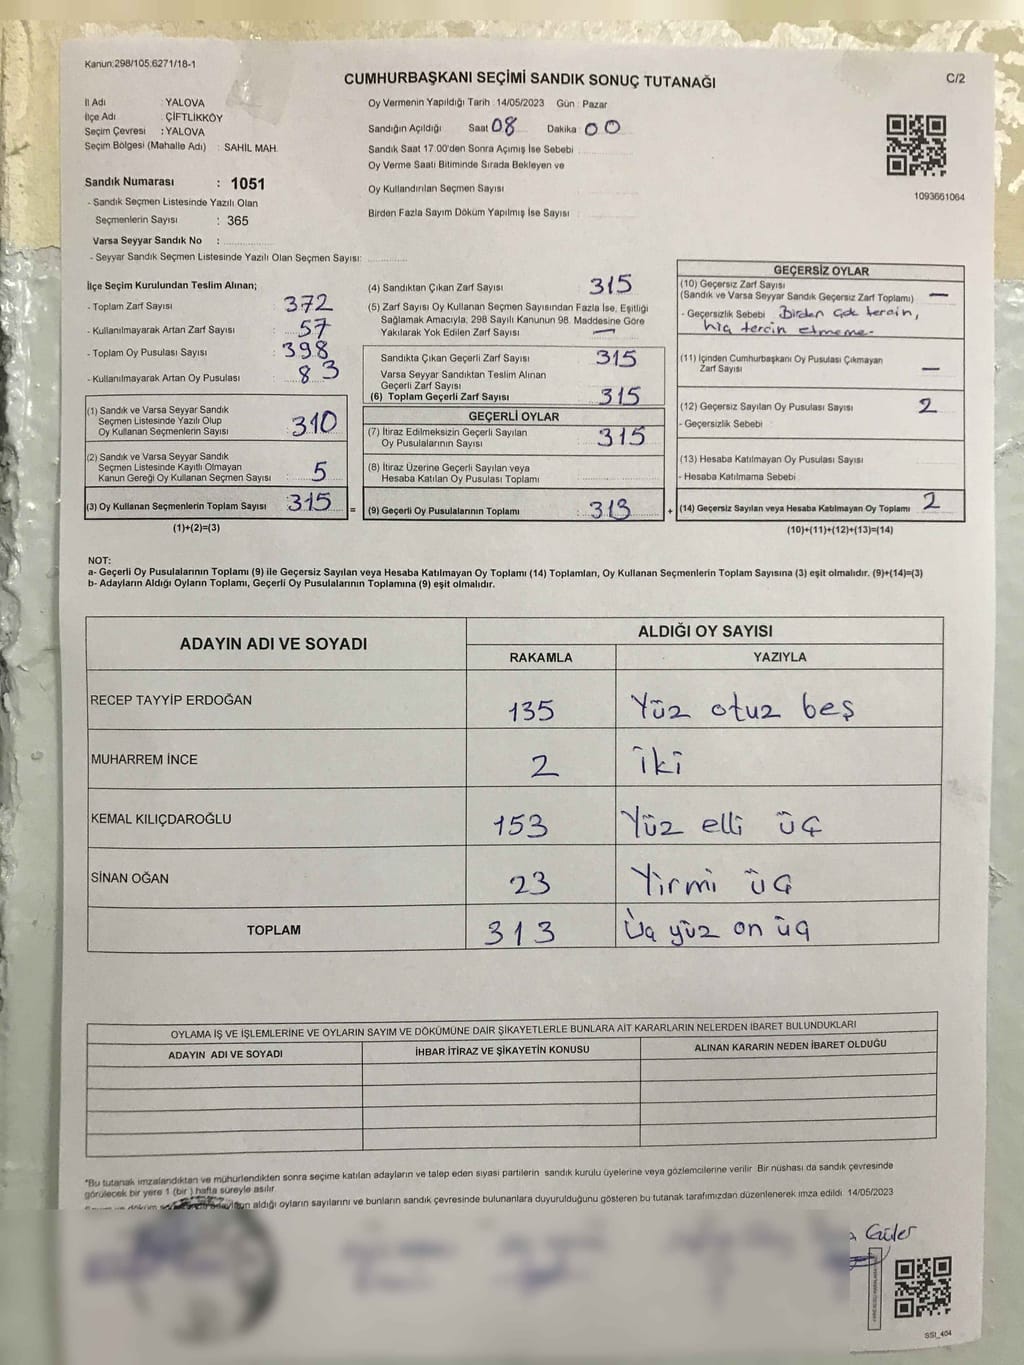 Kanun:298/105.6271/18-1
CUMHURBAŞKANI SEÇİMİ SANDIK SONUÇ TUTANAĞI
C/2
İl Adı : YALOVA
İlçe Adı : ÇİFTLİKKÖY
Seçim Çevresi : YALOVA
Seçim Bölgesi (Mahalle Adı) : SAHİL MAH.
Oy Vermenin Yapıldığı Tarih : 14/05/2023 Gün : Pazar
Sandığın Açıldığı Saat 08 Dakika 00
Sandık Saat 17.00'den Sonra Açımış İse Sebebi
Oy Verme Saati Bitiminde Sırada Bekleyen ve
Oy Kullandırılan Seçmen Sayısı
Birden Fazla Sayım Döküm Yapılmış İse Sayısı
1093661064
Sandık Numarası : 1051
- Sandık Seçmen Listesinde Yazılı Olan
Seçmenlerin Sayısı : 365
Varsa Seyyar Sandık No :
- Seyyar Sandık Seçmen Listesinde Yazılı Olan Seçmen Sayısı:
İlçe Seçim Kurulundan Teslim Alınan;
- Toplam Zarf Sayısı : 372
- Kullanılmayarak Artan Zarf Sayısı : 57
- Toplam Oy Pusulası Sayısı : 398
- Kullanılmayarak Artan Oy Pusulası : 83
(1) Sandık ve Varsa Seyyar Sandık
Seçmen Listesinde Yazılı Olup
Oy Kullanan Seçmenlerin Sayısı : 310
(2) Sandık ve Varsa Seyyar Sandık
Seçmen Listesinde Kayıtlı Olmayan
Kanun Gereği Oy Kullanan Seçmen Sayısı : 5
(3) Oy Kullanan Seçmenlerin Toplam Sayısı : 315
(1)+(2)=(3)
(4) Sandıktan Çıkan Zarf Sayısı : 315
(5) Zarf Sayısı Oy Kullanan Seçmen Sayısından Fazla İse, Eşitliği
Sağlamak Amacıyla, 298 Sayılı Kanunun 98. Maddesine Göre
Yakılarak Yok Edilen Zarf Sayısı : —
Sandıkta Çıkan Geçerli Zarf Sayısı : 315
Varsa Seyyar Sandıktan Teslim Alınan
Geçerli Zarf Sayısı :
(6) Toplam Geçerli Zarf Sayısı : 315
GEÇERLİ OYLAR
(7) İtiraz Edilmeksizin Geçerli Sayılan
Oy Pusulalarının Sayısı : 315
(8) İtiraz Üzerine Geçerli Sayılan veya
Hesaba Katılan Oy Pusulası Toplamı :
= (9) Geçerli Oy Pusulalarının Toplamı : 313 +
GEÇERSİZ OYLAR
(10) Geçersiz Zarf Sayısı
(Sandık ve Varsa Seyyar Sandık Geçersiz Zarf Toplamı) —
- Geçersizlik Sebebi Birden çok tercih,
hiç tercih etmeme.
(11) İçinden Cumhurbaşkanı Oy Pusulası Çıkmayan
Zarf Sayısı —
(12) Geçersiz Sayılan Oy Pusulası Sayısı 2
- Geçersizlik Sebebi
(13) Hesaba Katılmayan Oy Pusulası Sayısı
- Hesaba Katılmama Sebebi
(14) Geçersiz Sayılan veya Hesaba Katılmayan Oy Toplamı 2
(10)+(11)+(12)+(13)=(14)
NOT:
a- Geçerli Oy Pusulalarının Toplamı (9) ile Geçersiz Sayılan veya Hesaba Katılmayan Oy Toplamı (14) Toplamları, Oy Kullanan Seçmenlerin Toplam Sayısına (3) eşit olmalıdır. (9)+(14)=(3)
b- Adayların Aldığı Oyların Toplamı, Geçerli Oy Pusulalarının Toplamına (9) eşit olmalıdır.
ADAYIN ADI VE SOYADI
ALDIĞI OY SAYISI
RAKAMLA YAZIYLA
RECEP TAYYİP ERDOĞAN 135 Yüz otuz beş
MUHARREM İNCE 2 iki
KEMAL KILIÇDAROĞLU 153 Yüz elli üç
SİNAN OĞAN 23 Yirmi üç
TOPLAM 313 Üç yüz on üç
OYLAMA İŞ VE İŞLEMLERİNE VE OYLARIN SAYIM VE DÖKÜMÜNE DAİR ŞİKAYETLERLE BUNLARA AİT KARARLARIN NELERDEN İBARET BULUNDUKLARI
ADAYIN ADI VE SOYADI İHBAR İTİRAZ VE ŞİKAYETİN KONUSU ALINAN KARARIN NEDEN İBARET OLDUĞU
*Bu tutanak imzalandıktan ve mühürlendikten sonra seçime katılan adayların ve talep eden siyasi partilerin sandık kurulu üyelerine veya gözlemcilerine verilir. Bir nüshası da sandık çevresinde
görülecek bir yere 1 (bir) hafta süreyle asılır.
aldığı oyların sayılarını ve bunların sandık çevresinde bulunanlara duyurulduğunu gösteren bu tutanak tarafımızdan düzenlenerek imza edildi. 14/05/2023
Güler
SSI_404